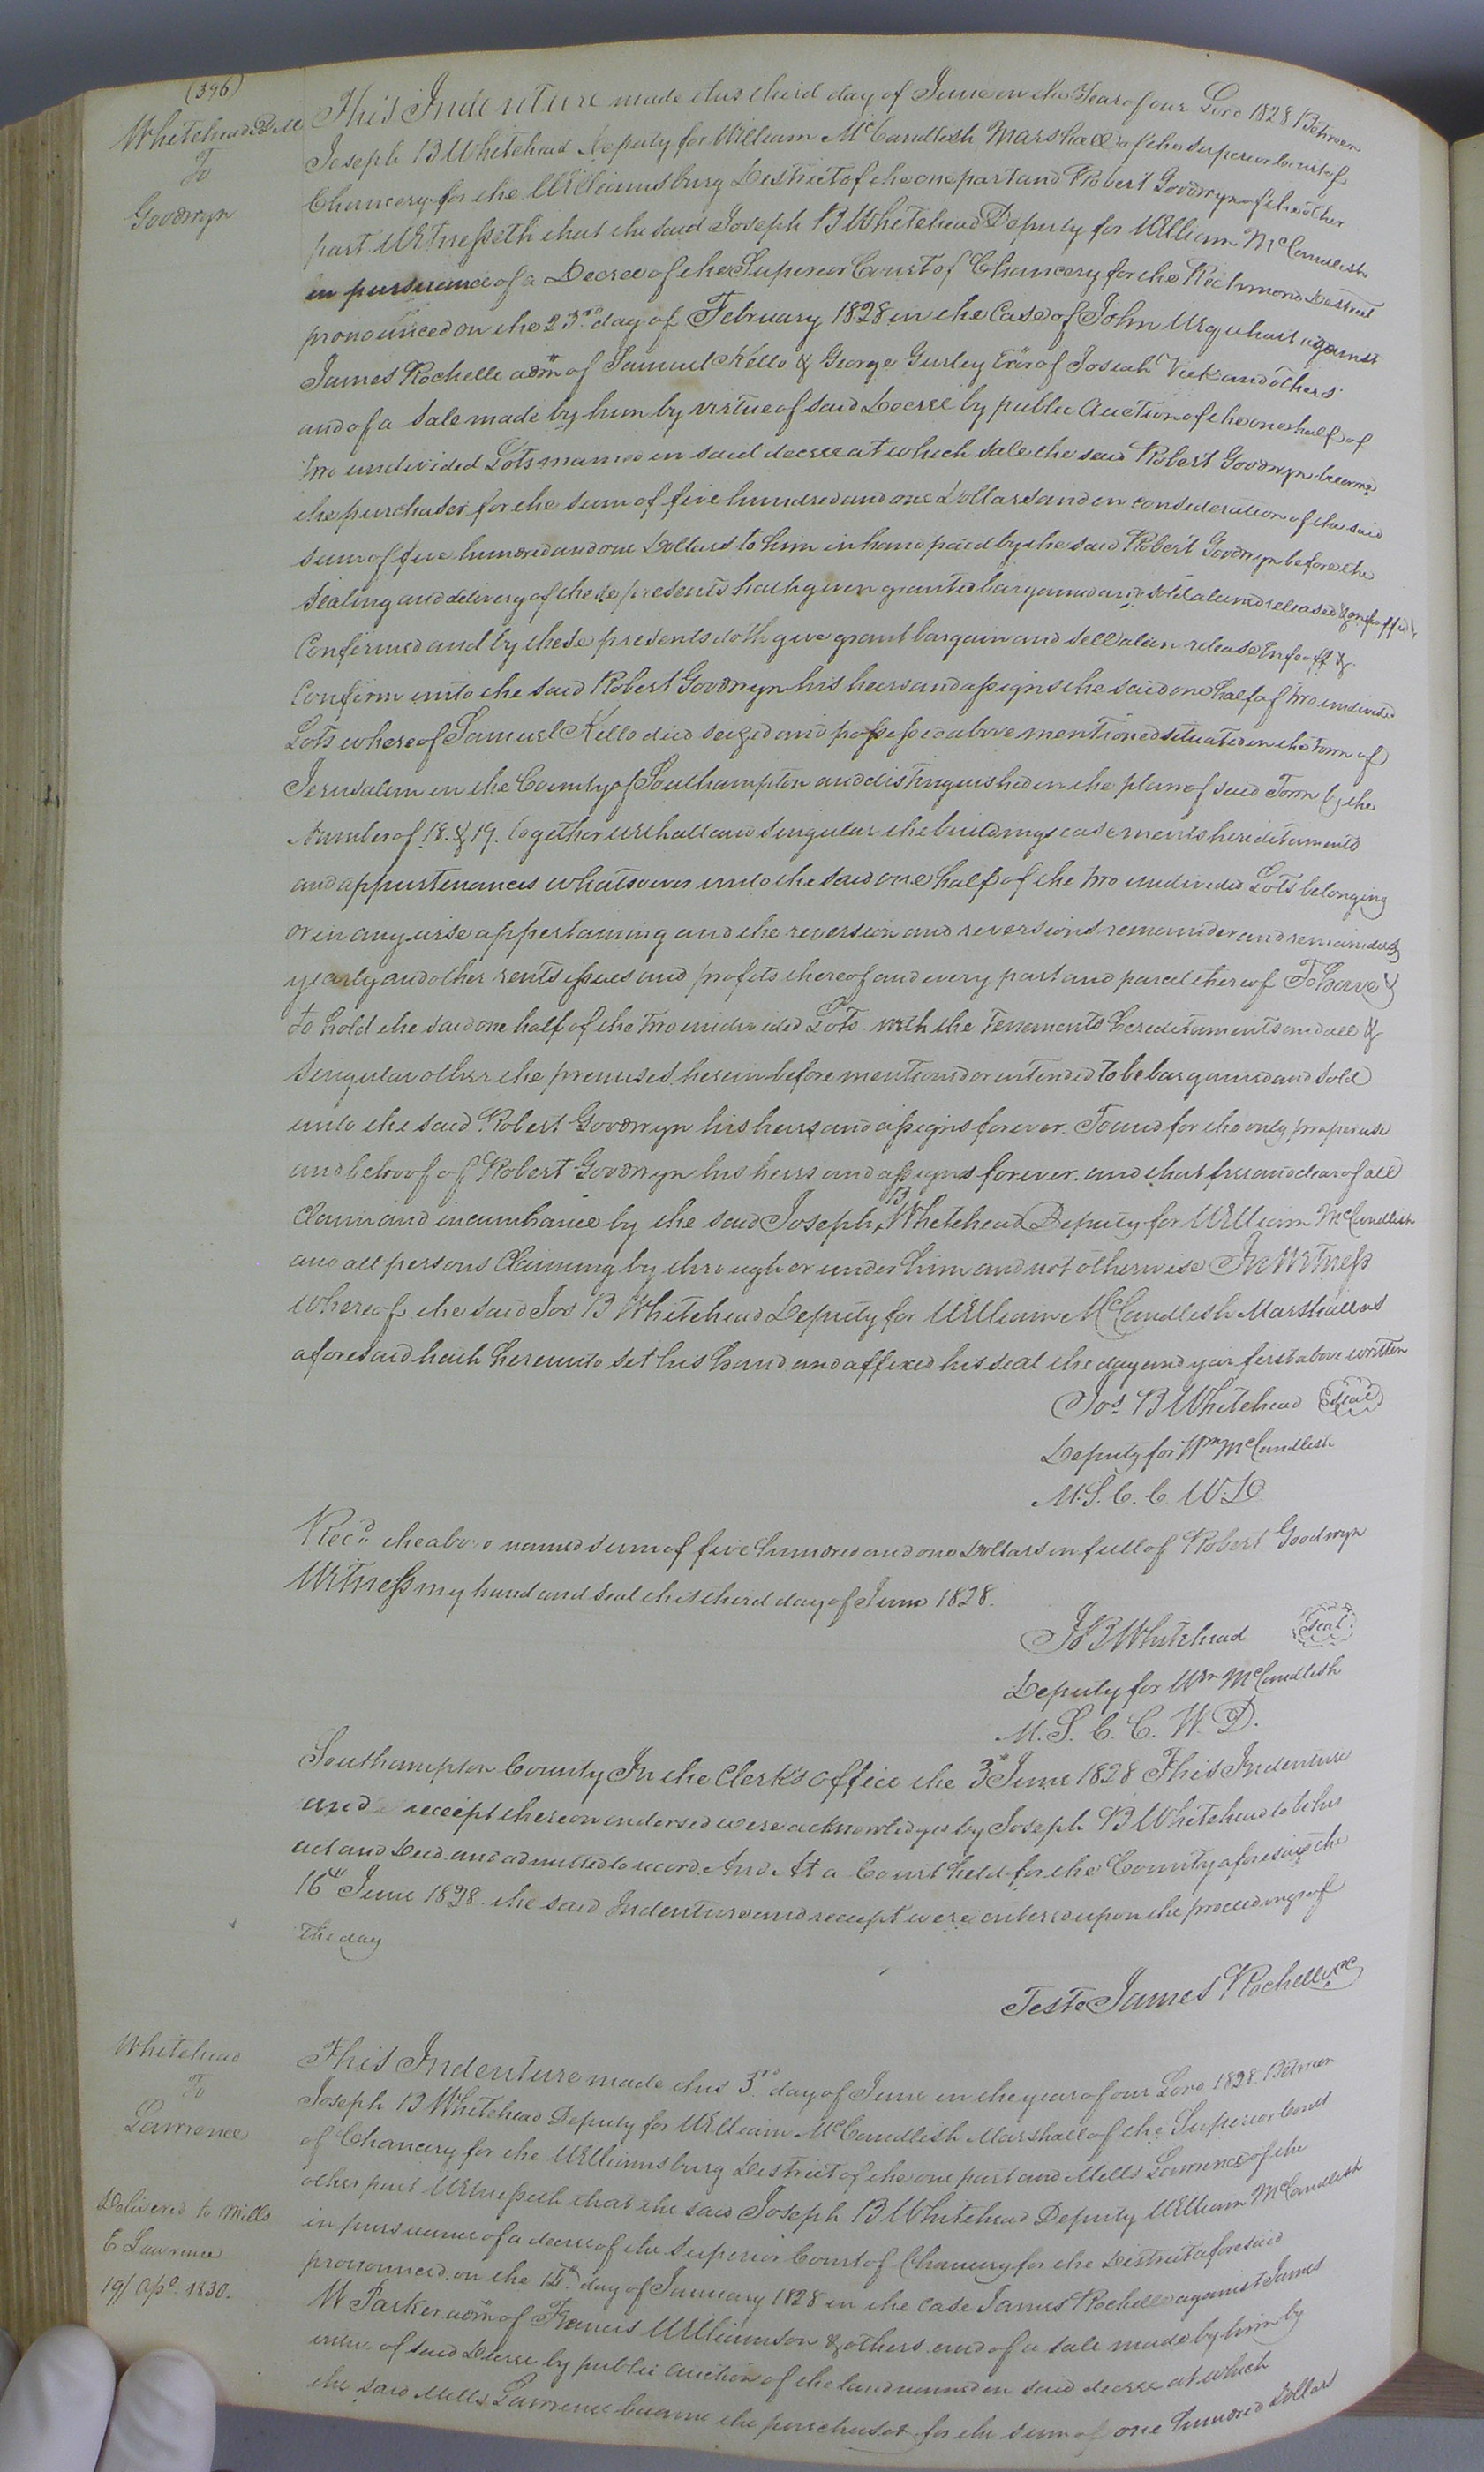 (396)
Whitehead Deed
To
Goodwyn
This Indenture made this third day of June in the Year of our Lord 1828 Between
Joseph B Whitehead Deputy for William McCandlish Marshall of the Superior Court of
Chancery for the Williamsburg District of the one part and Robert Goodwyn of the other
part Witnesseth that the said Joseph B Whitehead Deputy for William McCandlish
in pursuance of a Decree of the Superior Court of Chancery for the Richmond District
pronounced on the 23rd day of February 1828 in the Case of John Urquhart against
James Rochelle adm of Samuel Kello & George Gurley Exor of Josiah Vick and others
and of a Sale made by him by virtue of said Decree by public Auction of the one half of
two undivided Lots named in said decree at which sale the said Robert Goodwyn became
the purchaser for the sum of five hundred and one Dollars and in consideration of the said
sum of five hundred and one Dollars to him in hand paid by the said Robert Goodwyn before the
Sealing and delivery of these presents hath given granted bargained and sold aliened released &
Confirmed and by these presents doth give grant bargain and sell alien release Enfeoff &
Confirm unto the said Robert Goodwyn his heirs and assigns the said one half of two undivided
Lots whereof Samuel Kello died seized and possessed above mentioned situated in the Town of
Jerusalem in the County of Southampton and distinguished in the plan of said Town by the
Number of 18. & 19. together with all and singular the buildings easements hereditaments
and appurtenances whatsoever unto the said one half of the two undivided Lots belonging
or in any wise appertaining and the reversion and reversions remainder and remainders
yearly and other rents issues and profits thereof and every part and parcel thereof To have &
to hold the said one half of the two undivided Lots with the Tenements hereditaments and all &
Singular other the premises herein before mentioned or intended to be bargained and sold
unto the said Robert Goodwyn his heirs and assigns forever. To and for the only proper use
and behoof of Robert Goodwyn his heirs and assigns forever. and that free and clear of all
Claim and incumbrance by the said Joseph B Whitehead Deputy for William McCandlish
and all persons Claiming by through or under him and not otherwise In Witness
whereof the said Jos B Whitehead Deputy for William McCandlish Marshall as
aforesaid hath hereunto set his hand and affixed his seal the day and year first above written
Jos B Whitehead Seal
Deputy for Wm McCandlish
M. S. C. C. W. D.
Recd. the above named sum of five hundred and one Dollars in full of Robert Goodwyn
Witness my hand and seal this third day of June 1828.
Jo B Whitehead Seal
Deputy for Wm McCandlish
M. S. C. C. W. D.
Southampton County In the Clerk's office the 3d June 1828 This Indenture
and receipt thereon endorsed were acknowledged by Joseph B Whitehead to be his
act and Deed and admitted to record. And At a Court held for the County aforesaid the
16th June 1828. the said Indenture and receipt were entered upon the proceedings of
the day
Teste James Rochelle cc
Whitehead
To
Lawrence
Delivered to Mills
E Lawrence
19 Apl. 1830.
This Indenture made this 3rd day of June in the year of our Lord 1828. Between
Joseph B Whitehead Deputy for William McCandlish Marshall of the Superior Court
of Chancery for the Williamsburg District of the one part and Mills Lawrence of the
other part Witnesseth that the said Joseph B Whitehead Deputy William McCandlish
in pursuance of a decree of the Superior Court of Chancery for the District aforesaid
pronounced on the day of January 1828 in the case James Rochelle against James
W Parker adm of Francis Williamson & others and of a sale made by him by
virtue of said Decree by public auction of the land named in said decree at which
the said Mills Lawrence became the purchaser for the sum of one hundred Dollars